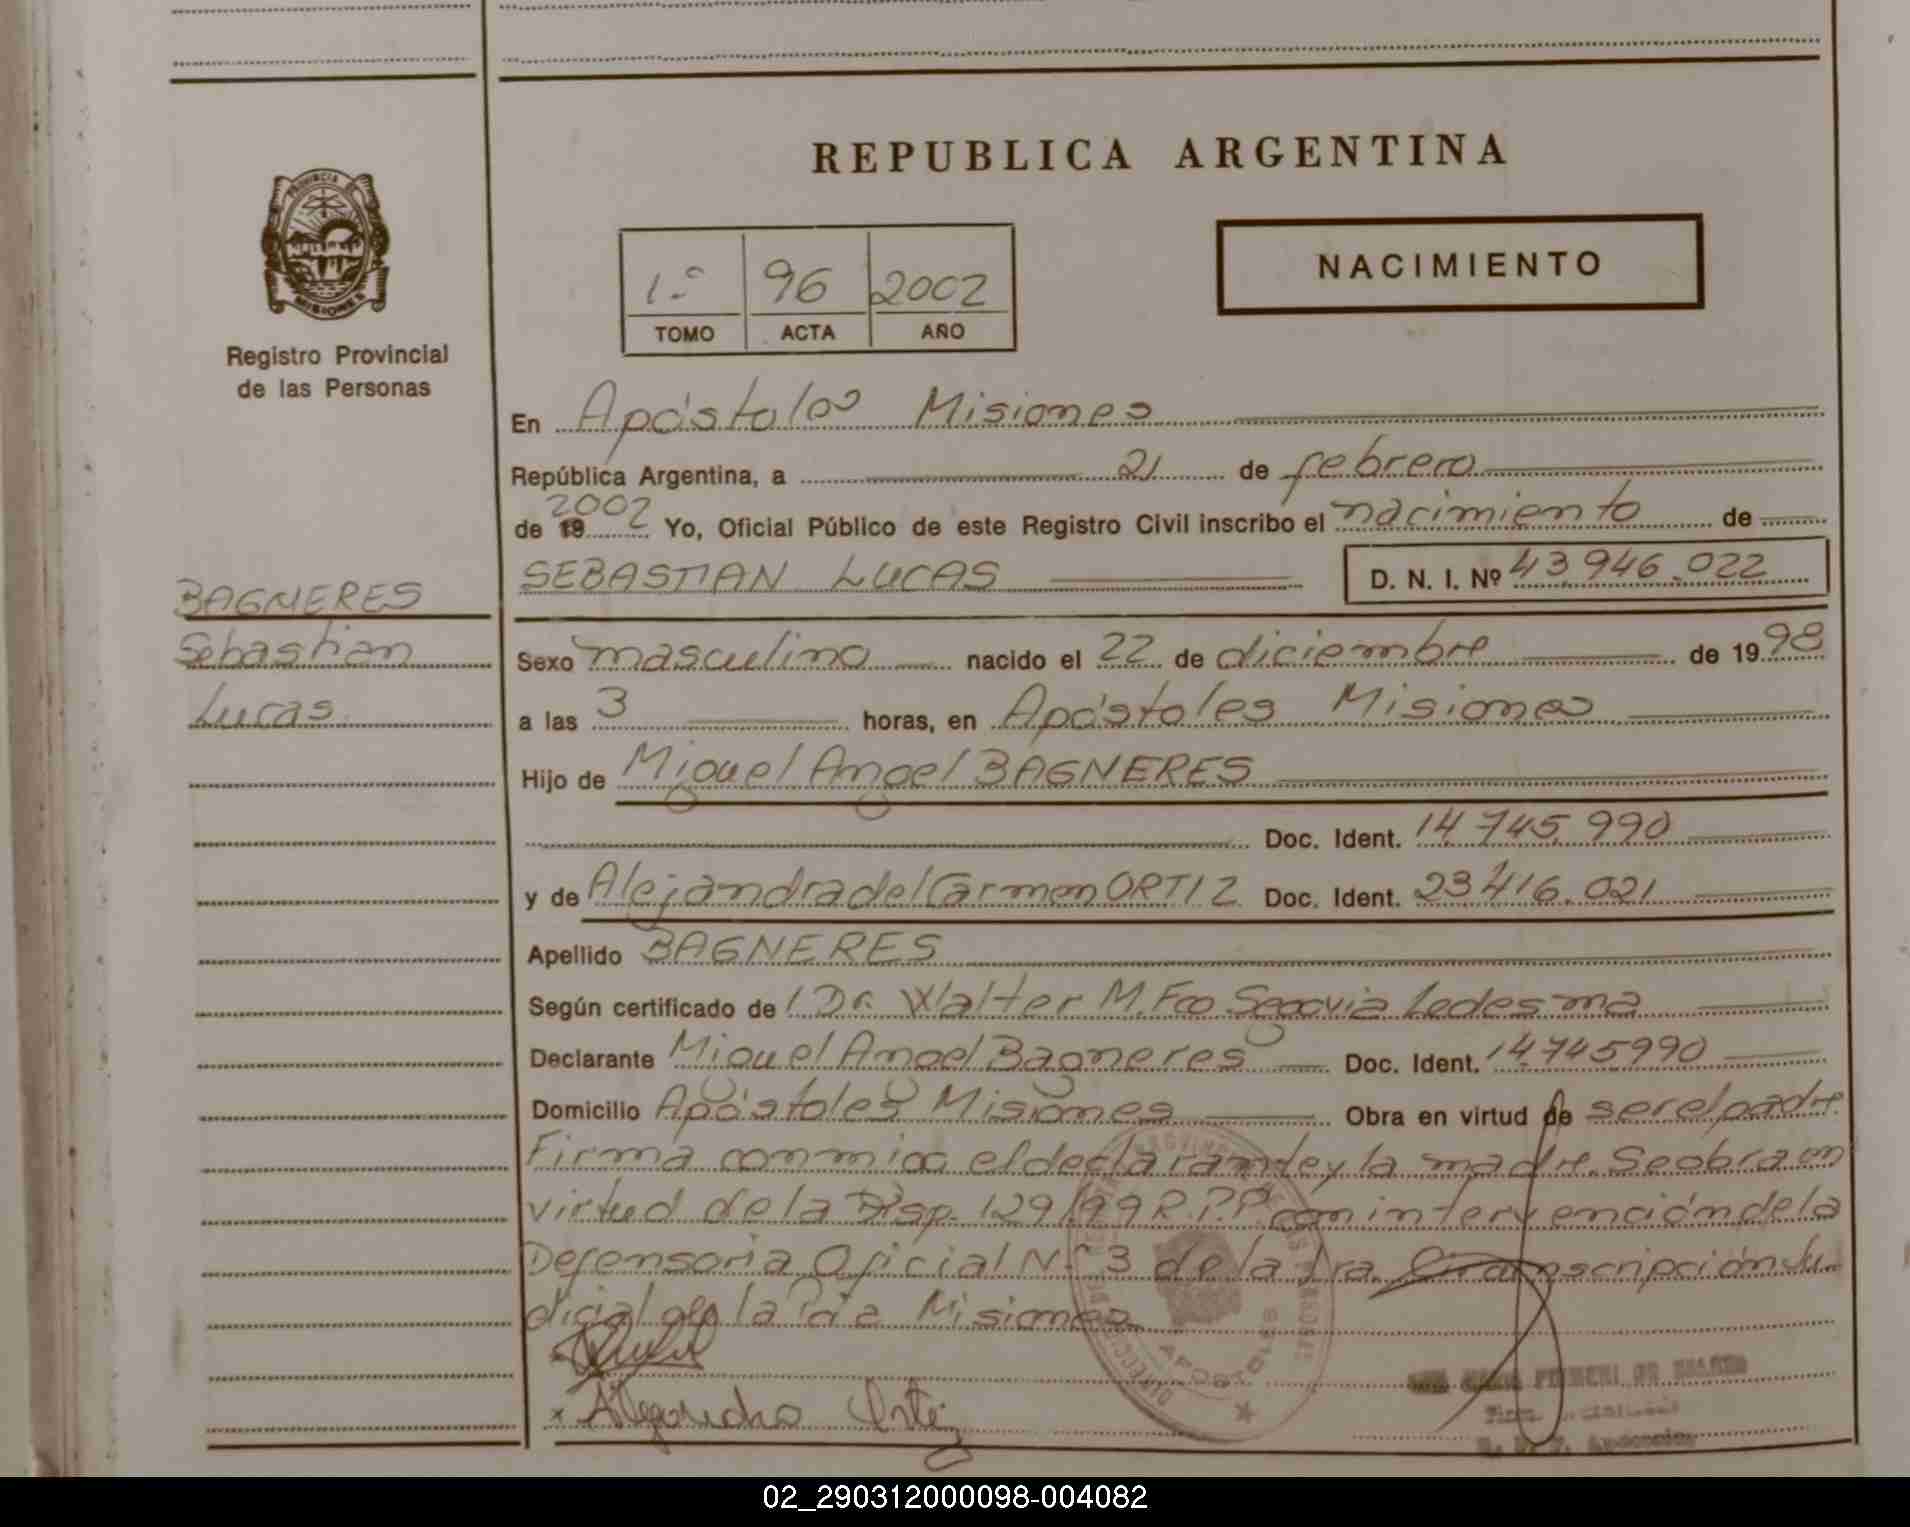 REPUBLICA ARGENTINA
PROVINCIA DE MISIONES
Registro Provincial
de las Personas
1º 96 2002
TOMO ACTA AÑO
NACIMIENTO
En Apóstoles Misiones
República Argentina, a 21 de febrero
de 19 2002 Yo, Oficial Público de este Registro Civil inscribo el nacimiento de
SEBASTIAN LUCAS D. N. I. Nº 43.946.022
BAGNERES
Sebastian
Lucas
Sexo masculino nacido el 22 de diciembre de 1998
a las 3 horas, en Apóstoles Misiones
Hijo de Miguel Angel BAGNERES
Doc. Ident. 14.745.990
y de Alejandra del Carmen ORTIZ Doc. Ident. 23.416.021
Apellido BAGNERES
Según certificado de l Dr. Walter M. Fco Segovia Ledesma
Declarante Miguel Angel Bagneres Doc. Ident. 14745990
Domicilio Apóstoles Misiones Obra en virtud de ser el padre
Firma conmigo el declarante y la madre. Se obra en
virtud de la Disp. 129/99 R.P.P. con intervención de la
Defensoria Oficial Nº 3 de la 1ra. Circunscripción Ju
dicial de la Pcia Misiones
Alejandra Ortiz
APOSTOLES
02_290312000098-004082